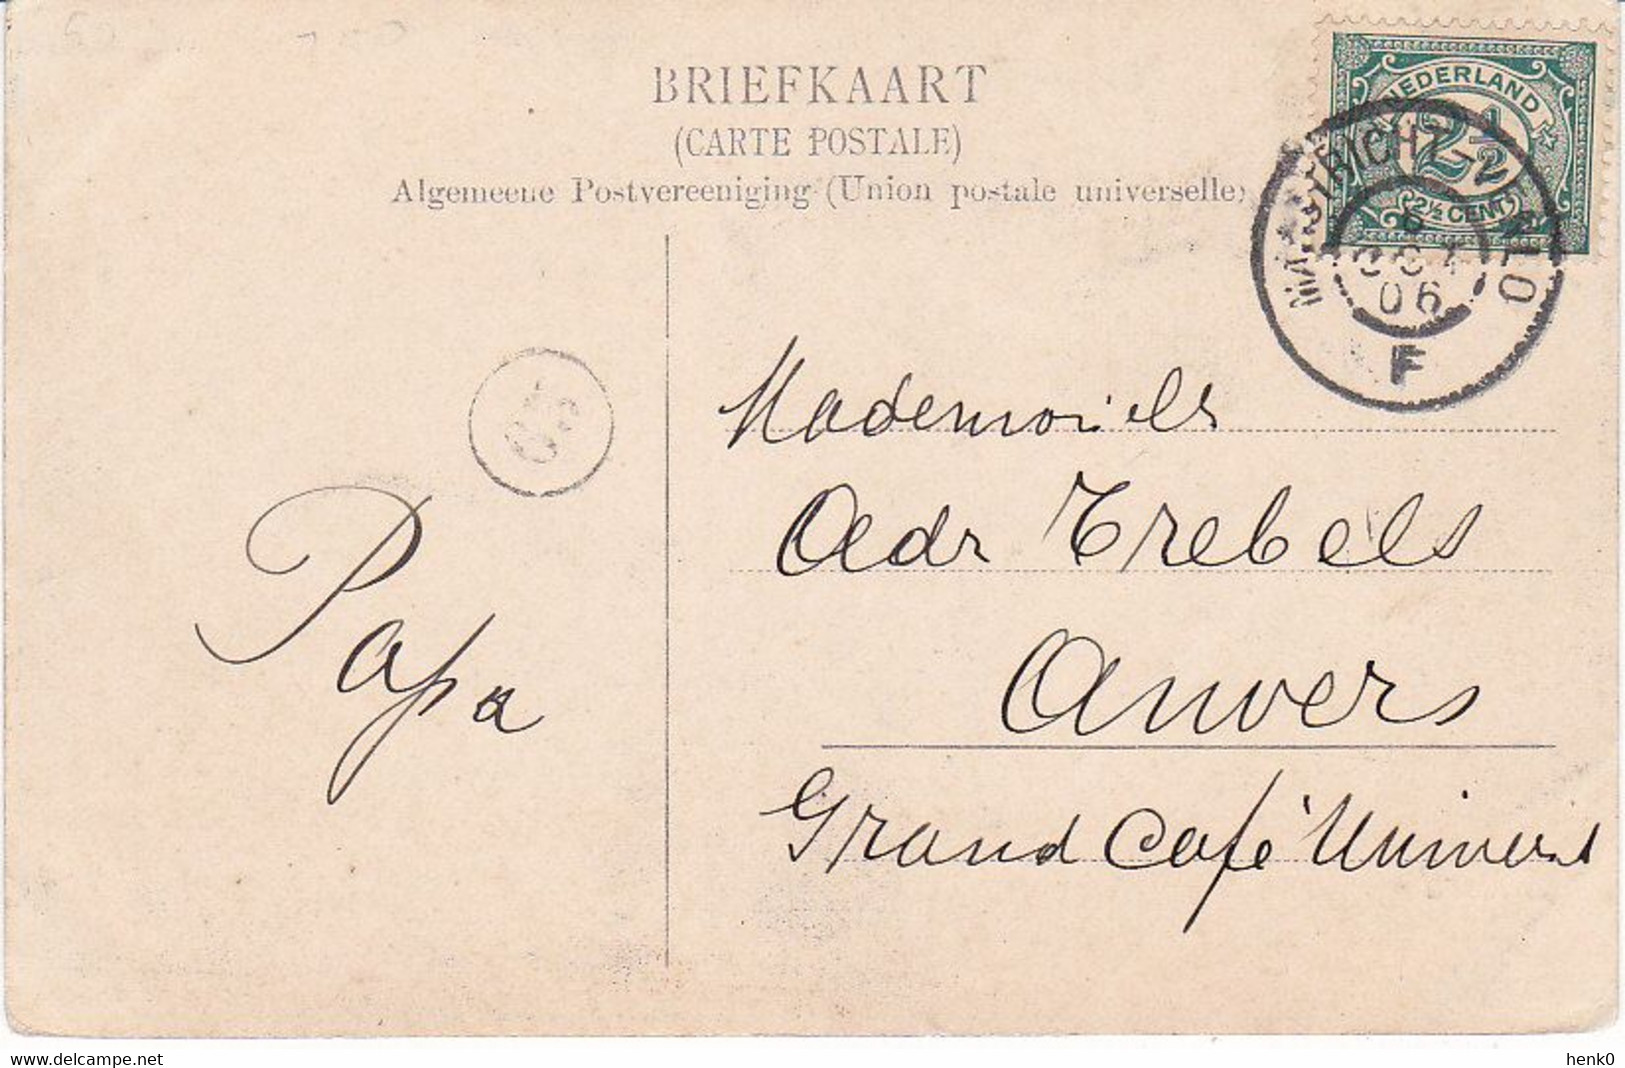 BRIEFKAART
(CARTE POSTALE)
Algemeene Postvereeniging (Union postale universelle)
NEDERLAND
2½
2½ CENT
MAASTRICHT-VENLO
6
OCT
06
F
Mademoiselle
Aedr Trebels
Anvers
Grand Café Univers
Papa
delcampe.net
henk0